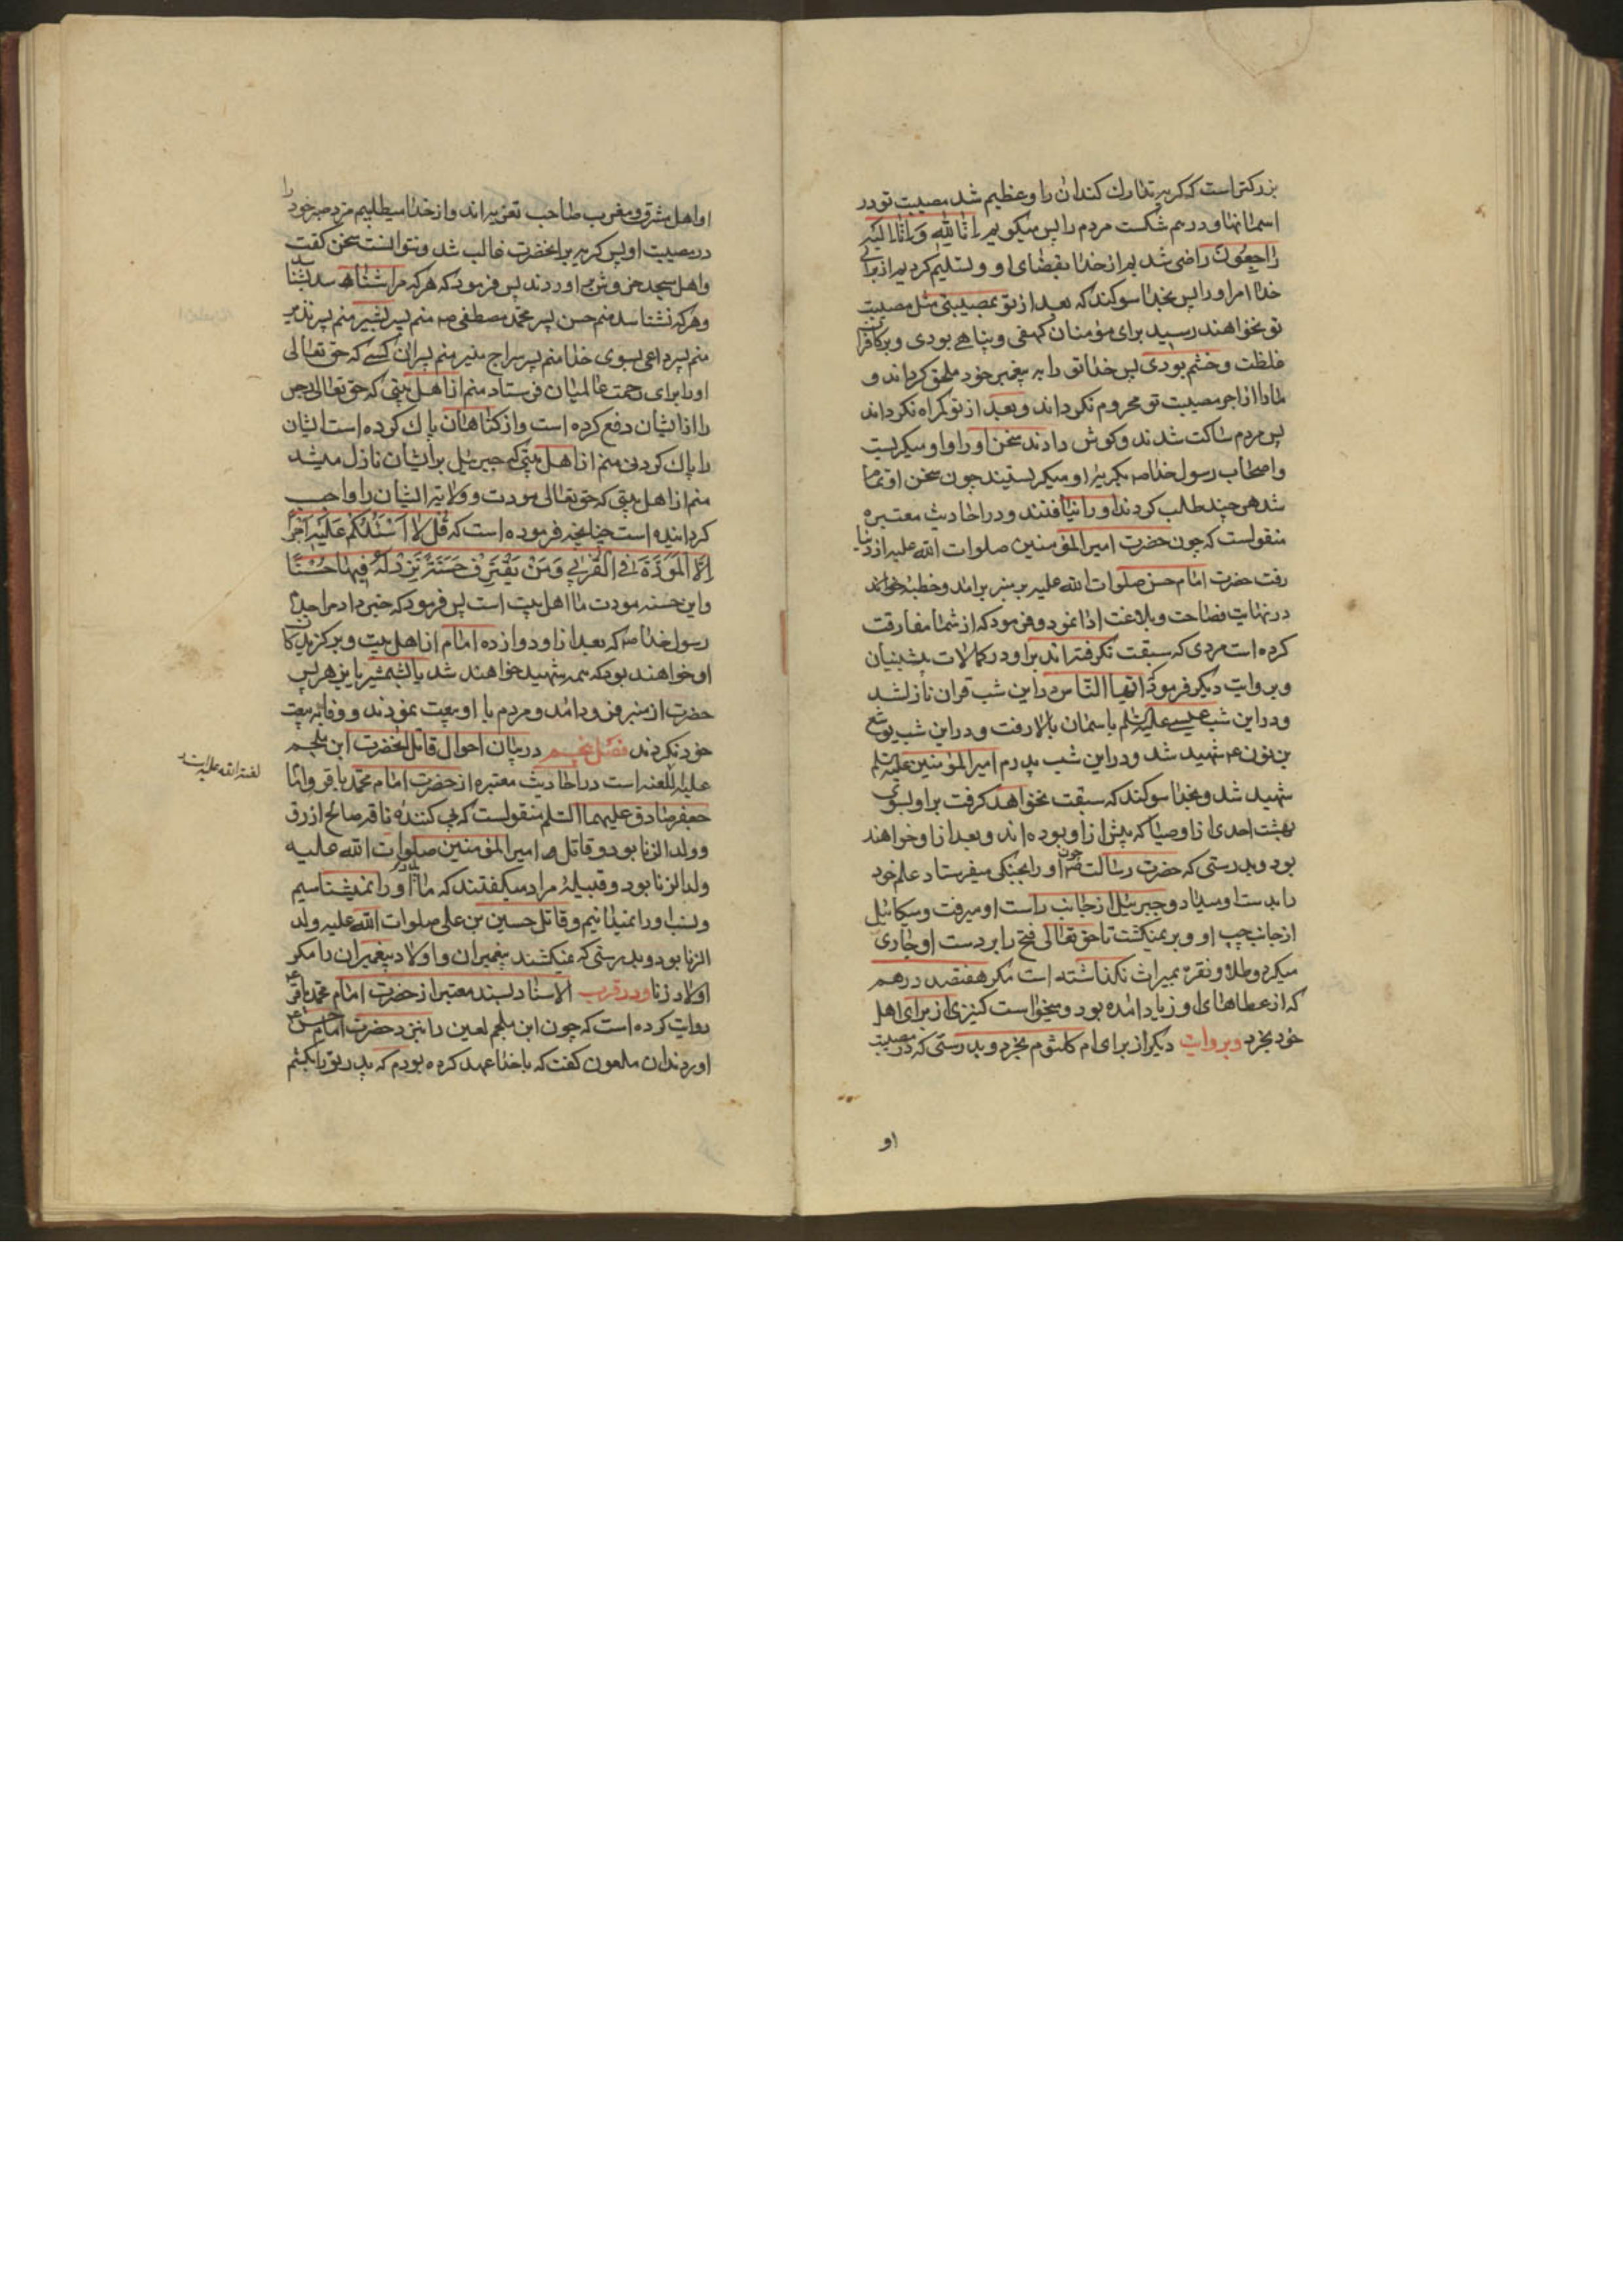 بزرکتر است که کریه تدارک کند ان را و عظیم شد مصیبت تو در
اسمانها و درهم شکست مردم را پس میکویم انا لله و انا الیه
راجعون راضی شدیم از خدا بقضای او و تسلیم کردیم از برای
خدا امر او را پس بخدا سوکند که بعد از تو بمصیبتی مثل مصیبت
تو نخواهند رسید برای مؤمنان کهفی و پناهی بودی و بر کافران
غلظت و خشم بودی پس خدا تو را به پیغمبر خود ملحق کرداند و
ما را از اجر مصیبت تو محروم نکرداند و بعد از تو کمراه نکرداند
پس مردم ساکت شدند و کوش دادند سخن او را و او میکریست
و اصحاب رسول خدا ص بکریه او میکریستند چون سخن او تمام
شد هر چند طلب کردند او را نیافتند و در احادیث معتبره
منقولست که چون حضرت امیر المؤمنین صلوات الله علیه از دنیا
رفت حضرت امام حسن صلوات الله علیه بر منبر برامد و خطبه خواند
در نهایت فصاحت و بلاغت ادا نمود و فرمود که از شما مفارقت
کرده است مردی که سبقت نکرفته اند بر او در کمالات پیشینیان
و بروایت دیکر فرمود ایها الناس در این شب قران نازل شد
و در این شب عیسی علیه السلم باسمان بالا رفت و در این شب یوشع
بن نون ع شهید شد و در این شب پدرم امیر المؤمنین علیه السلم
شهید شد و بخدا سوکند که سبقت نخواهد کرفت بر او بسوی
بهشت احدی از اوصیا که پیش از او بوده اند و بعد از او خواهند
بود و بدرستی که حضرت رسالت ص چون او را بجنکی میفرستاد علم خود
را بدست او میداد و جبرئیل از جانب راست او میرفت و میکائیل
از جانب چپ او و بر نمیکشت تا حق تعالی فتح را بر دست او جاری
میکرد و طلا و نقره بمیراث نکذاشته است مکر هفتصد درهم
که از عطاهای او زیاد امده بود و میخواست کنیزی از برای اهل
خود بخرد و بروایت دیکر از برای ام کلثوم بخرد و بدرستی که در مصیبت
او
او اهل مشرق و مغرب صاحب تعزیه اند و از خدا میطلبیم مزد صبر خود را
در مصیبت او پس کریه بر انحضرت غالب شد و نتوانست سخن کفت
و اهل مسجد خروش بر اوردند پس فرمود که هر که مرا شناسد شناسد
و هر که نشناسد منم حسن پسر محمد مصطفی ص منم پسر بشیر منم پسر نذیر
منم پسر داعی بسوی خدا منم پسر سراج منیر منم پسر ان کسی که حق تعالی
او را برای رحمت عالمیان فرستاد منم از اهل بیتی که حق تعالی رجس
را از ایشان دفع کرده است و از کناهان پاک کرده است ایشان
را پاک کردنی منم از اهل بیتی که جبرئیل بر ایشان نازل میشد
منم از اهل بیتی که حق تعالی مودت و ولایت ایشان را واجب
کردانیده است چنانچه فرموده است که قُل لا اَسْئَلُكُم عَلَيْهِ اَجْراً
اِلَّا الْمَوَدَّةَ فِي الْقُرْبٰي وَ مَنْ يَقْتَرِفْ حَسَنَةً نَزِدْ لَهُ فِيهٰا حُسْناً
و این حسنه مودت ما اهل بیت است پس فرمود که خبر داد مرا جدم
رسول خدا ص که بعد از او دوازده امام از اهل بیت و برکزیدکان
او خواهند بود که همه شهید خواهند شد یا بشمشیر یا بزهر پس
حضرت از منبر فرود امد و مردم با او بیعت نمودند و وفا به بیعت
خود نکردند فصل پنجم در بیان احوال قاتل انحضرت ابن ملجم
علیه اللعنه است در احادیث معتبره از حضرت امام محمد باقر و امام
جعفر صادق علیهما السلم منقولست که پی کننده ناقه صالح ازرق
و ولد الزنا بود و قاتل امیر المؤمنین صلوات الله علیه
ولد الزنا بود و قبیله مراد میکفتند که ما پدر او را نمیشناسیم
و نسب او را نمیدانیم و قاتل حسین بن علی صلوات الله علیه ولد
الزنا بود و بدرستی که نمیکشند پیغمبران و اولاد پیغمبران را مکر
اولاد زنا و در قرب الاسناد بسند معتبر از حضرت امام محمد باقر ع
روایت کرده است که چون ابن ملجم لعین را بنزد حضرت امام حسن ع
اوردند ان ملعون کفت که با خدا عهد کرده بودم که پدر تو را بکشم
لعنة الله علیه